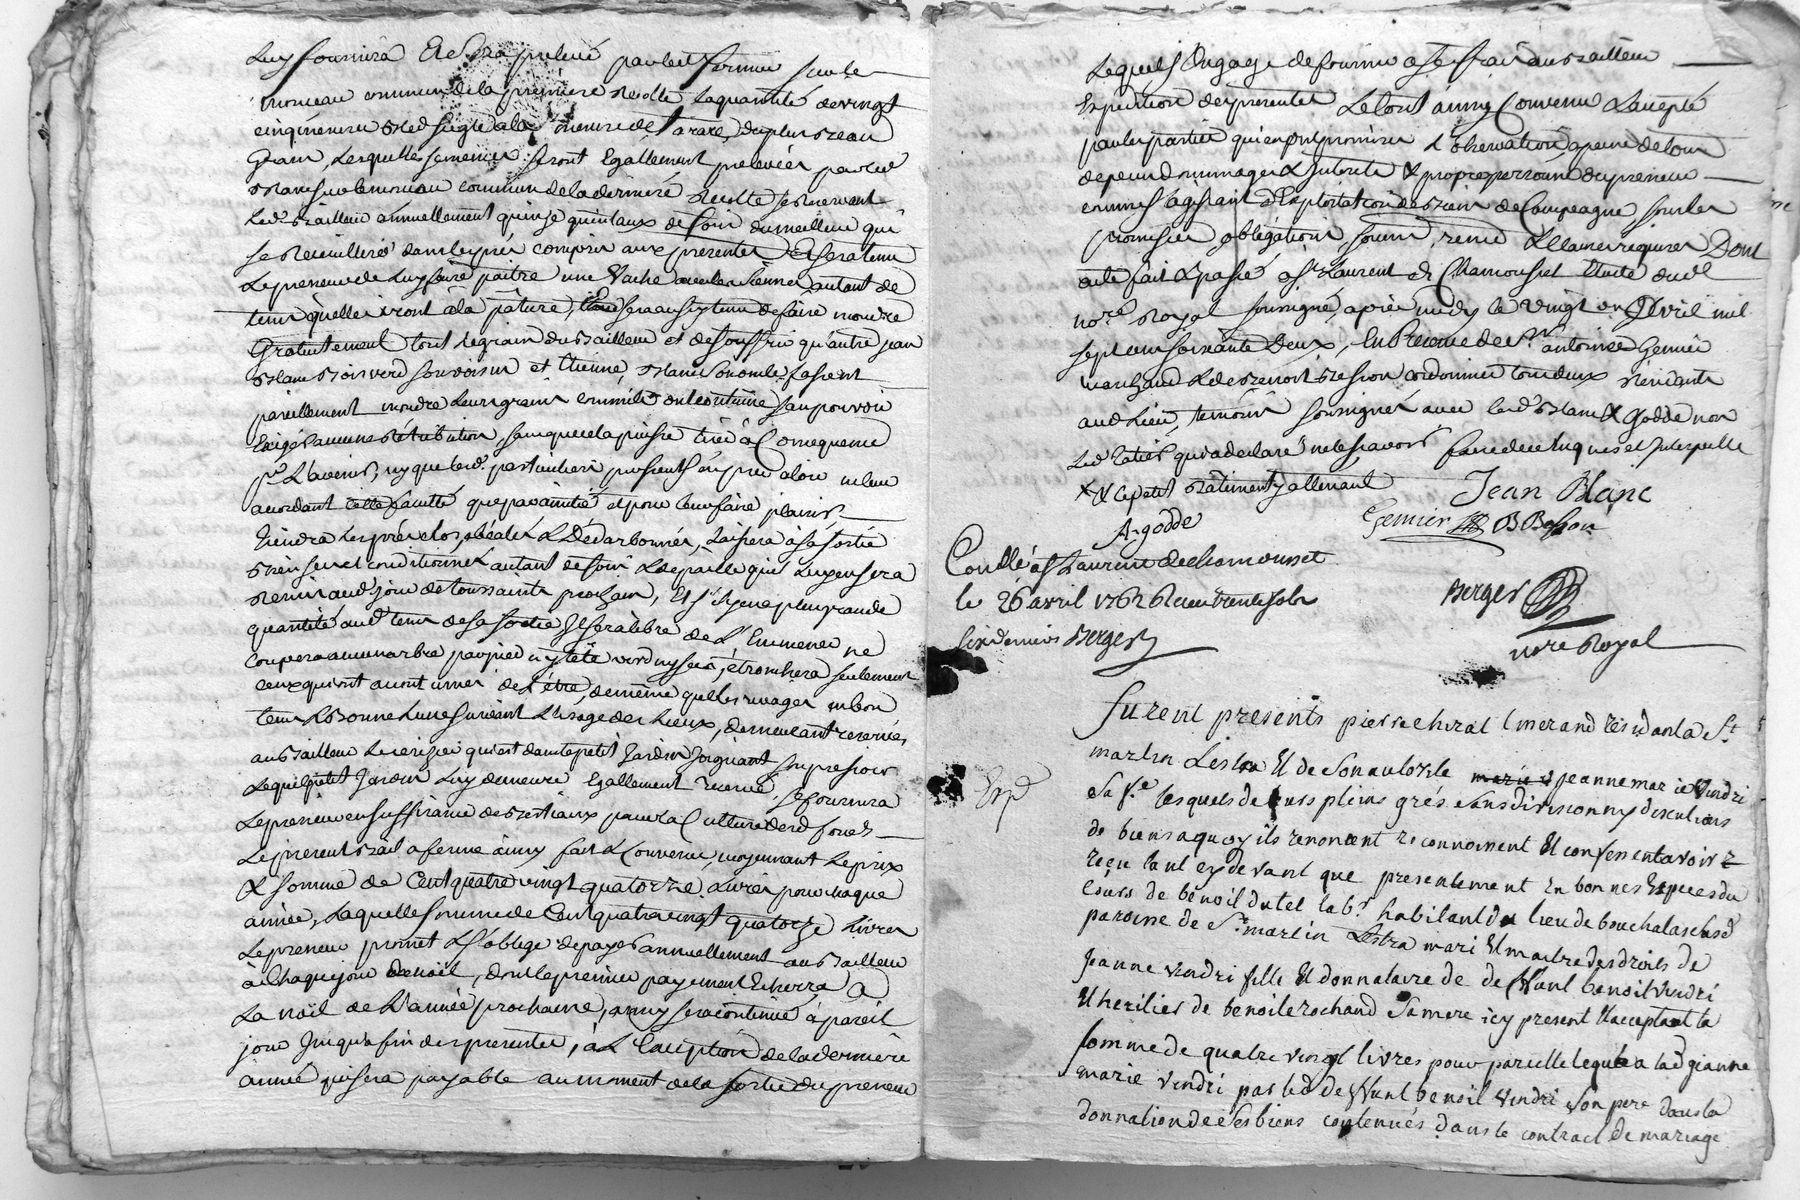 Luy fournira Et Sera prelevé par led. fermier sur le
monceau commun de la première recolte la quantité de vingt
cinq mesures bled seigle à la mesure de Tarare, du plus beau
Grain, Lesquelles semences seront Egallement prelevées par led
Blanc sur le monceau commun de la dernière recolte se reservant
Led. Bailleur annuellement quinze quintaux de foin du meilleur qui
se recuillira dans les prés compris aux presentes Et sera tenu
Le preneur de Luy faire paitre une Vache avec les siennes autant de
tems qu'elles iront à la pature, sera aussy tenu de faire moudre
Gratuitement tout le grain du Bailleur et de souffrir qu'autre jean
Blanc son voisin et Etienne, Blanc fassent
pareillement moudre Leurs grains comm'ils ont coutume, sans pouvoir
Exiger aucune retribution, sans que cela puisse tirer à Consequence
pr. L'avenir, ny que lesd. particuliers puissent
accordant cette faculté que par amitié et pour leur faire plaisir
Tiendra Les prés clos, & , Laissera à sa sortie
autant de foin & de paille qu'il Luy en sera
remis aud. jour de toussaints prochain, Et s'il y en a plus grande
quantité aud. tems de sa sortie Il sera libre de L'Emmener ne
coupera aucun arbre par pied ny tête verd ny sec, étronchera seulement
ceux qui ont accoutumés de L'être, de même que Les en bon
tems & Bonne Lune suivant L'Usage des Lieux, demeurant reservés
au Bailleur Le cerizier qui est dans le petit Jardin Joignant
Lequel petit Jardin Luy demeure Egallement reservé, se fournira
Le preneur en suffisance de Bestiaux pour la Culture desd. fonds
Le present Bail a ferme ainsy fait & Convenu, moyennant Le prix
& somme de Cent quatre vingt quatorze Livres pour chaque
année, Laquelle somme de Cent quatre vingt quatorze Livres
Le preneur promet & s'oblige de payer annuellement au Bailleur
à chaque jour de noël, dont le premier payement Echerra a
La noël de L'année prochaine, ainsy sera continué à pareil
jour Jusqu'à fin des presentes, à L'Exception de la dernière
année qui sera payable au moment de la sortie du preneur
Lequel s'Engage de fournir a ses frais au Bailleur
Expedition des presentes Le tout ainsy Convenu & accepté
par les parties qui en ont promis L'observation, a peine de tous
depens dommages & Interets & propre personne du preneur
comme s'agissant d'Exploitation de Biens de Campagne, sous les
promesses, obligations, soum, renon & Clauses requises Dont
acte fait & passé a St. Laurent de Chamousset Etude dud
nore. Royal soussigné, après midy le vingt un Avril mil
sept cent soixante Deux, En Presence de Sr. antoine Gemier
marchand & de Benoit Besson cordonnier tous deux residants
aud. Lieu, temoins soussignés avec led. Blanc & Godde non
Led. qui a declaré ne le sçavoir faire de ce Enquis et Interpellé
X & le petit Batiment y attenant
Jean Blanc
A. godde
Gemier B Besson
Conttlé a St Laurent de chamousset
le 26 avril 1762 Reçu trente sols
six deniers Berger
Berger
nore Royal
furent presents pierre chirat residant a St.
martin Lestra Et de Son autorité jeanne marie Vindri
Sa fe. lesquels de leurs pleins grés Sans division ny discutions
de biens a quoy ils renoncent reconnoissent Et confessent avoir
reçu tant cy devant que presentement En bonnes Especes du
Cours de benoit dutel labr. habitant du lieu de
paroisse de St. martin Lestra mari Et maitre des droits de
Jeanne vindri fille Et donnataire de deffunt benoit vindri
Et heritier de benoite rochand Sa mere icy present Et acceptant la
Somme de quatre vingt livres pour pareille leguée a lad. jeanne
marie vindri par led. deffunt benoit vindri Son pere dans la
donnation de Ses biens contenues dans le contract de mariage
Exp